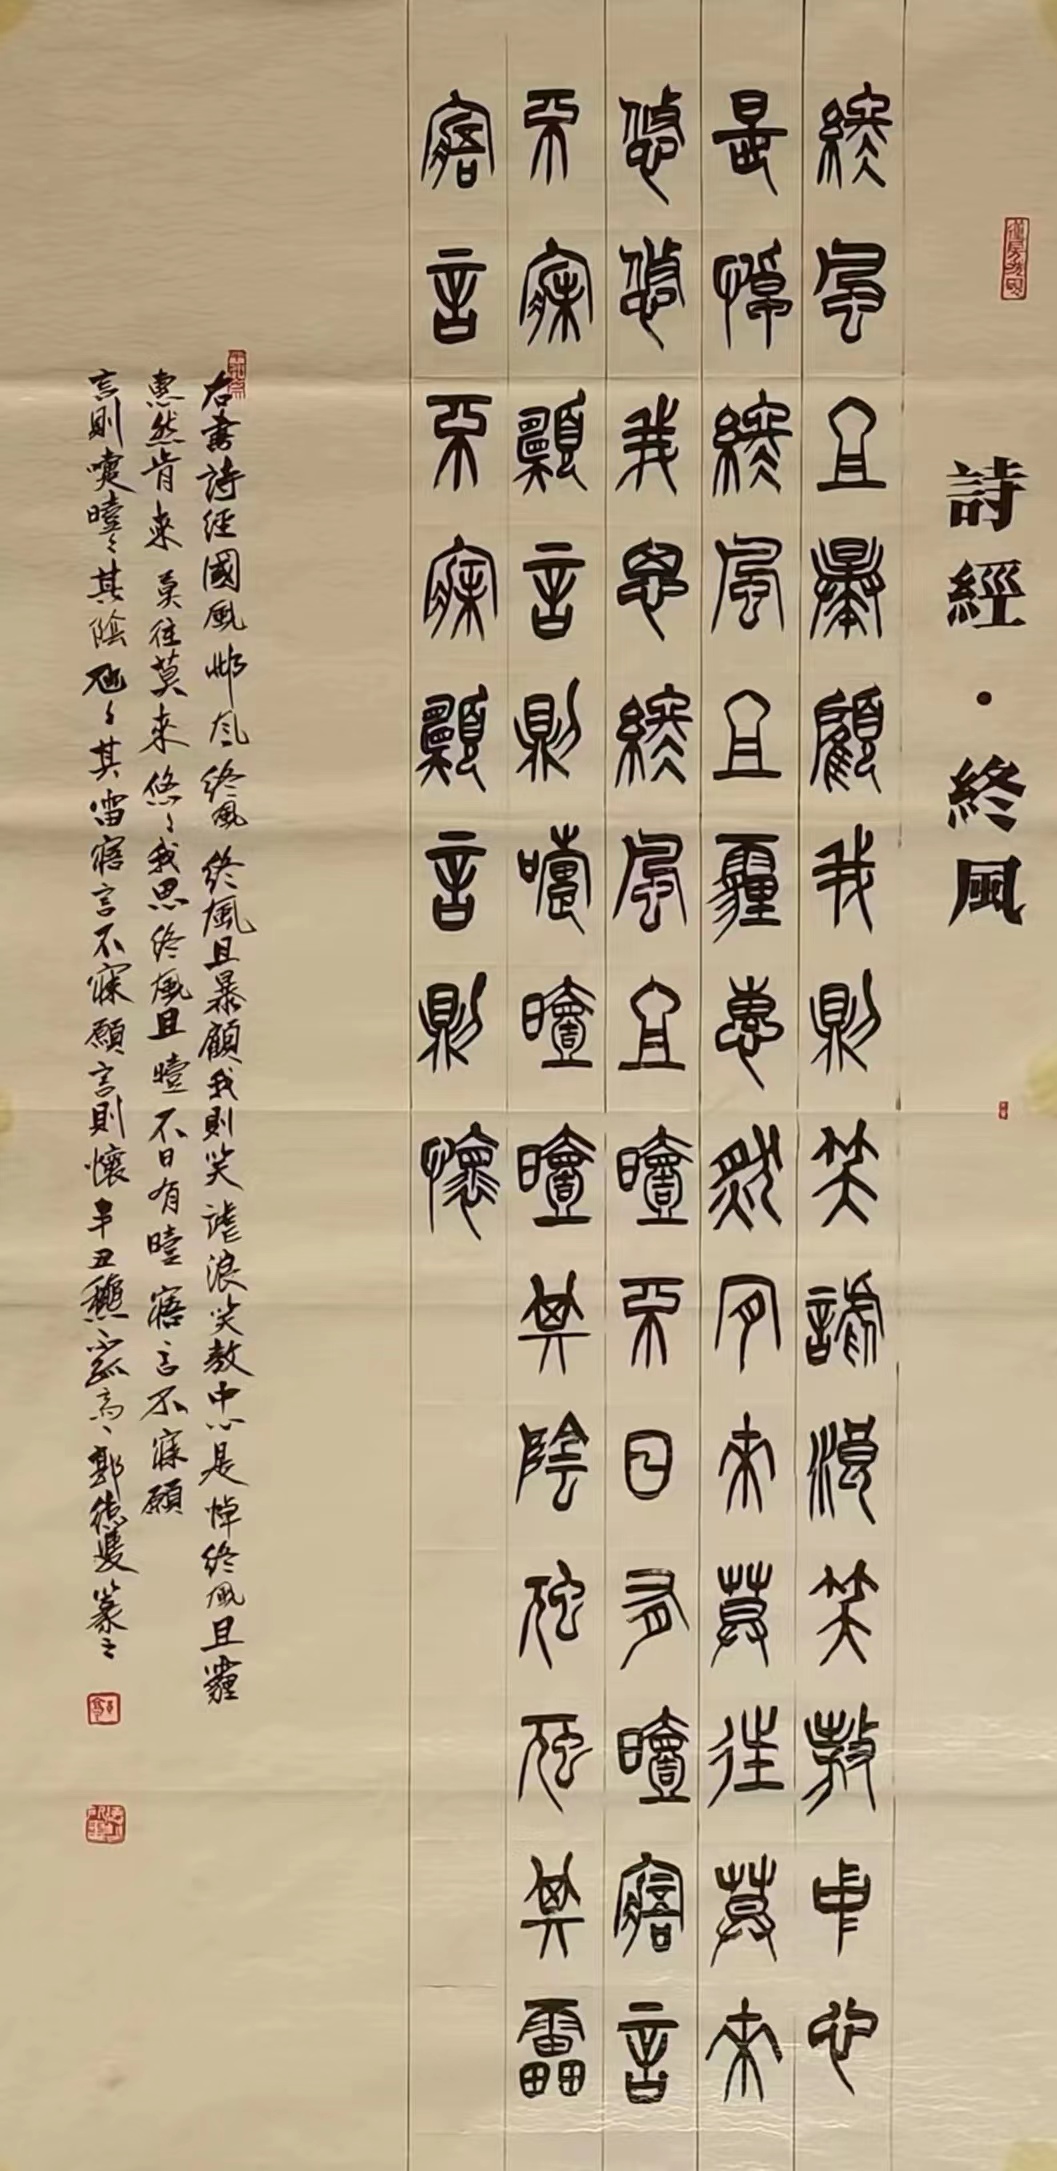 詩經·終風
終風且暴顧我則笑謔浪笑敖中心
是悼終風且霾惠然肯來莫往莫來
悠悠我思終風且曀不日有曀寤言
不寐願言則嚏曀曀其陰虺虺其靁
寤言不寐願言則懷
右書詩經國風邶風終風終風且暴顧我則笑謔浪笑敖中心是悼終風且霾
惠然肯來莫往莫來悠〻我思終風且曀不日有曀寤言不寐願
言則嚏曀〻其陰虺〻其雷寤言不寐願言則懷辛丑龝高郭德篆之